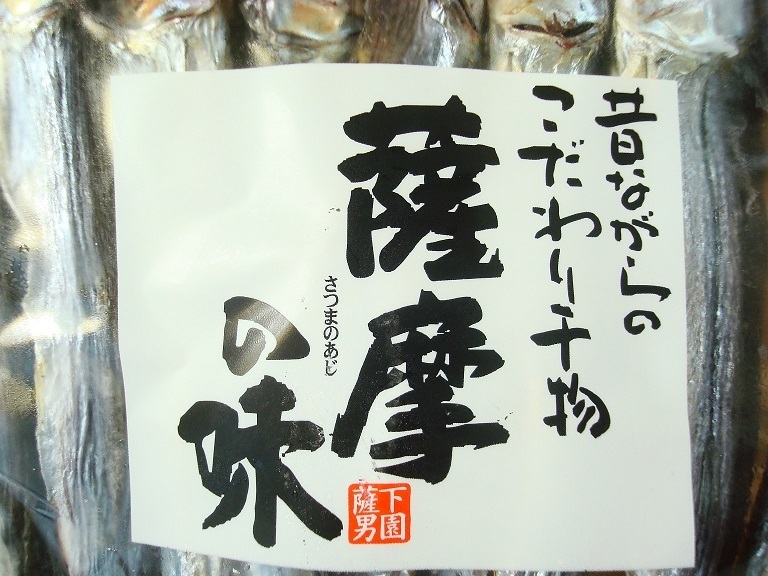 昔ながらの
こだわり干物
薩摩
さつまのあじ
の味
下園
薩男